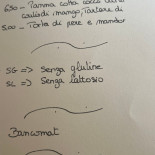 6,50 - Panna cotta
coulis di mango, Tartare di
5,00 - Torta di pere e mandor
SG => Senza glutine
SL => Senza lattosio
Bancomat